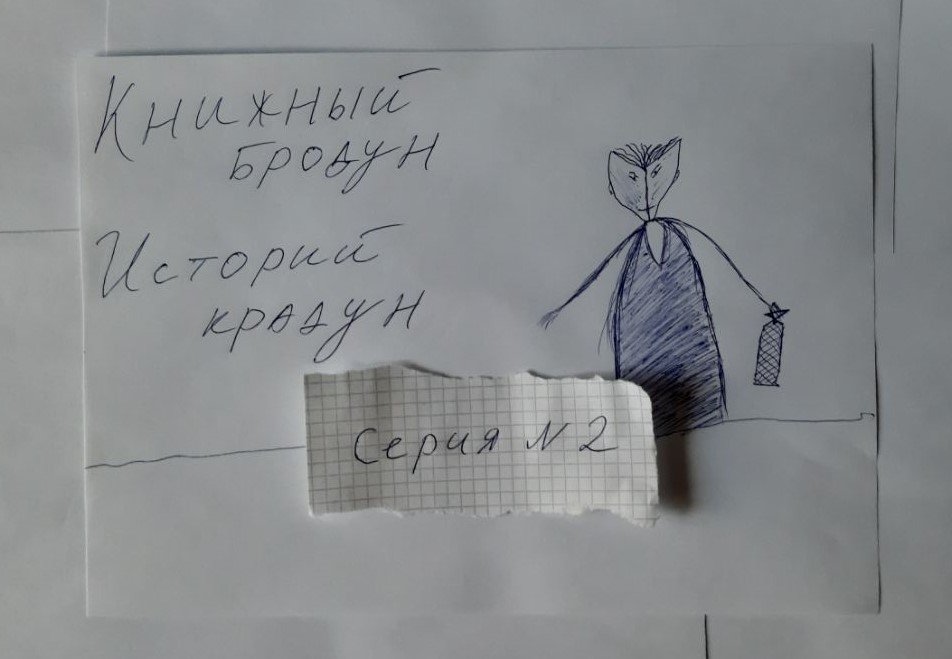 Книжный
бродун
Историй
крадун
Серия N2